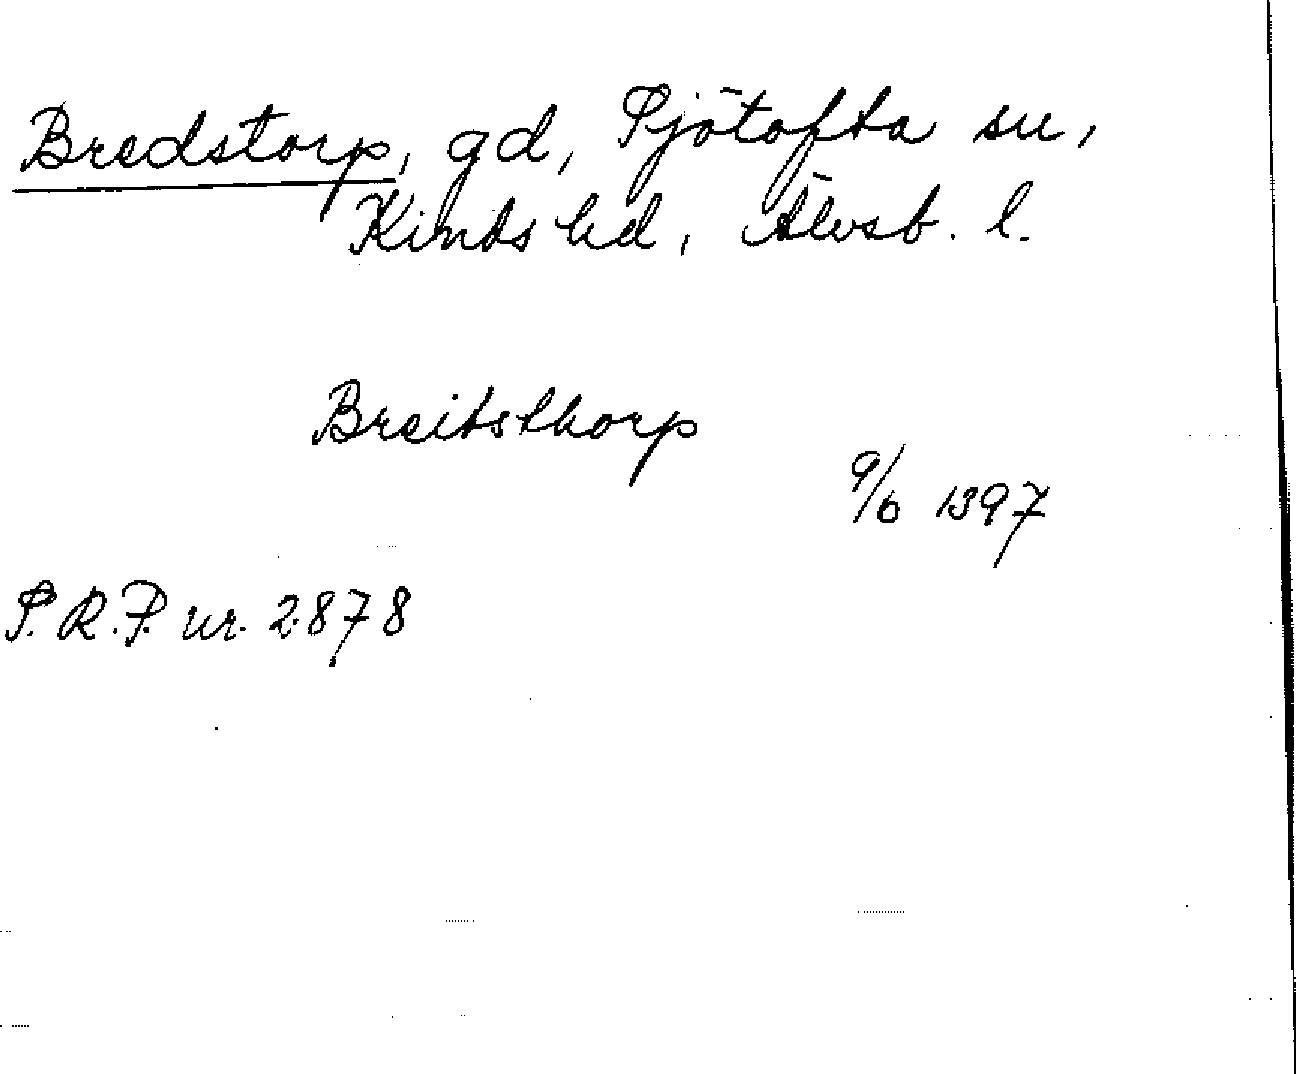 Bredstorp, gd, Sjötofta sn,
Kinds hd, Älvsb. l.
Breitsthorp
9/6 1397
S.R.P. nr. 2878